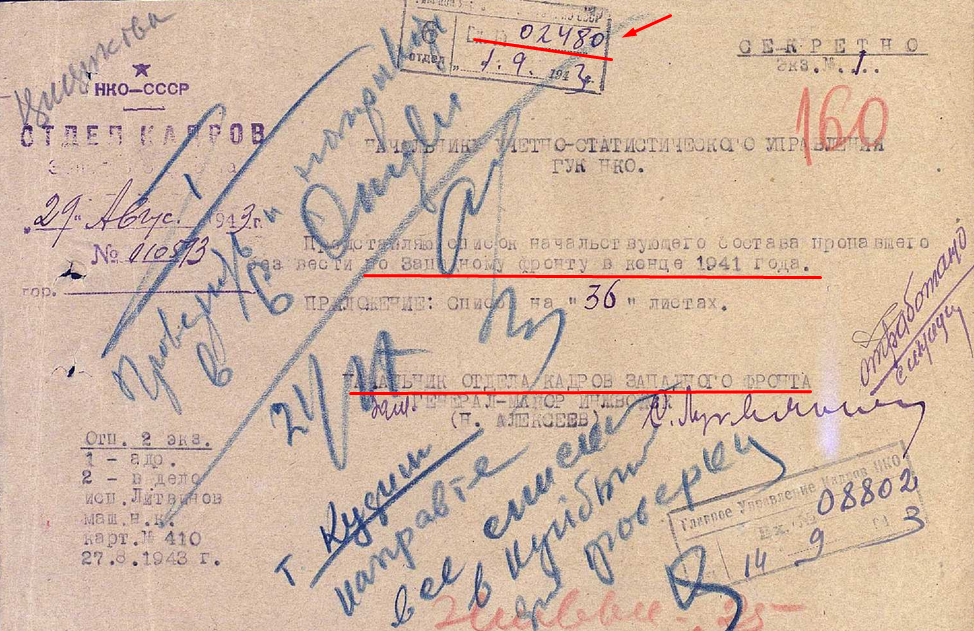 СЕКРЕТНО
Экз. № 1.
02480
1. 9. 1943 г.
ОТДЕЛ
НКО—СССР
ОТДЕЛ КАДРОВ
160
НАЧАЛЬНИКУ УЧЕТНО-СТАТИСТИЧЕСКОГО УПРАВЛЕНИЯ
ГУК НКО.
"29" Авгус. 1943 г.
№ 010573
гор.
Представляю список начальствующего состава пропавшего
без вести по Западному фронту в конце 1941 года.
ПРИЛОЖЕНИЕ: Список на "36" листах.
отработано
НАЧАЛЬНИК ОТДЕЛА КАДРОВ ЗАПАДНОГО ФРОНТА
ГЕНЕРАЛ-МАЙОР ИНЖВОЙСК
(Н. АЛЕКСЕЕВ)
Отп. 2 экз.
1 - адр.
2 - в дело
исп. Литвинов
маш. н.к.
карт. № 410
27.8.1943 г.
т. Кузин
направте
все списки
в Куйбыш
для проверки
Главное Управление Кадров НКО
Вх. № 08802
14 9 3